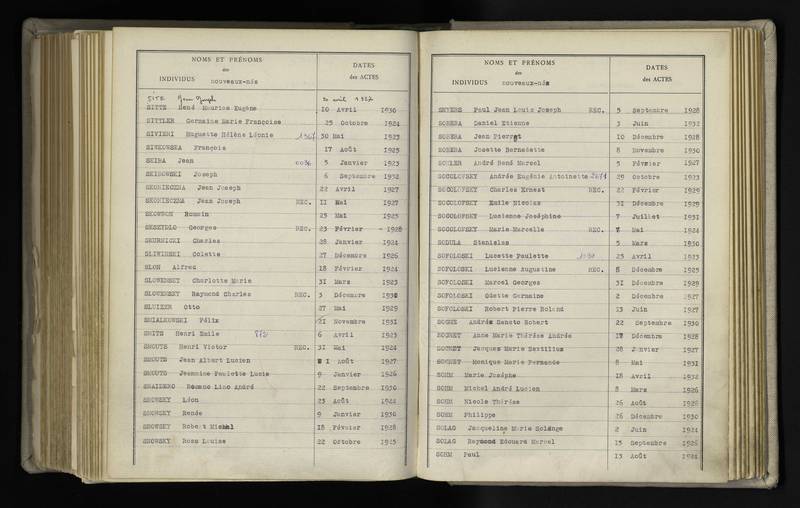 NOMS ET PRÉNOMS
des
INDIVIDUS nouveaux-nés
DATES
des ACTES
SITTE René Maurice Eugène 10 Avril 1930
SITTLER Germaine Marie Françoise 25 Octobre 1924
SIVIERI Huguette Hélène Léonie 30 Mai 1923
SIWKOWSKA François 17 Août 1925
SKIBA Jean 5 Janvier 1923
SKIBOWSKI Joseph 6 Septembre 1932
SKONIECZNA Jean Joseph 22 Avril 1927
SKONIECZNA Jean Joseph REC. 11 Mai 1927
SKOWRON Romain 25 Mai 1925
SKSZYDLO Georges REC. 23 Février 1928
SKURNICKI Charles 28 Janvier 1924
SLIWINSKI Colette 27 Décembre 1926
SLON Alfred 18 Février 1924
SLOWENSKY Charlotte Marie 31 Mars 1923
SLOWENSKY Raymond Charles REC. 3 Décembre 1932
SLUIZER Otto 27 Mai 1929
SMIALKOWSKI Félix 21 Novembre 1931
SMITS Henri Emile 6 Avril 1923
SMOUTS Henri Victor REC. 31 Mai 1924
SMOUTS Jean Albert Lucien 1 Août 1927
SMOUTS Jeannine Paulette Lucie 9 Janvier 1926
SNAIDERO Romano Lino André 22 Septembre 1930
SNOWSKY Léon 23 Août 1924
SNOWSKY Renée 9 Janvier 1930
SNOWSKY Robert Michel 18 Février 1928
SNOWSKY Rose Louise 22 Octobre 1925
NOMS ET PRÉNOMS
des
INDIVIDUS nouveaux-nés
DATES
des ACTES
SNYERS Paul Jean Louis Joseph REC. 5 Septembre 1928
SOBERA Daniel Etienne 3 Juin 1932
SOBERA Jean Pierre 10 Décembre 1928
SOBERA Josette Bernadette 8 Novembre 1930
SOBLER André René Marcel 5 Février 1927
SOCOLOFSKY Andrée Eugénie Antoinette 29 Octobre 1923
SOCOLOFSKY Charles Ernest REC. 22 Février 1929
SOCOLOFSKY Emile Nicolas 31 Décembre 1929
SOCOLOFSKY Lucienne Joséphine 7 Juillet 1931
SOCOLOFSKY Marie Marcelle REC. Mai 1924
SODULA Stanislas 5 Mars 1930
SOFOLOSKI Lucette Paulette 25 Avril 1923
SOFOLOSKI Lucienne Augustine REC. 8 Décembre 1925
SOFOLOSKI Marcel Georges 31 Décembre 1929
SOFOLOSKI Odette Germaine 2 Décembre 1927
SOFOLOSKI Robert Pierre Roland 13 Juin 1927
SOGNE André Sancto Robert 22 Septembre 1930
SOGNET Anne Marie Thérèse Andrée Décembre 1928
SOGNET Jacques Marie Bacillius 28 Janvier 1927
SOGNET Monique Marie Fernande 8 Mai 1931
SOHM Marie Josèphe 18 Avril 1932
SOHM Michel André Lucien 8 Mars 1926
SOHM Nicole Thérèse 26 Août 1926
SOHM Philippe 26 Décembre 1930
SOLAG Jacqueline Marie Solange 2 Juin 1924
SOLAG Raymond Edouard Marcel 15 Septembre 1926
SOHM Paul 13 Août 1924